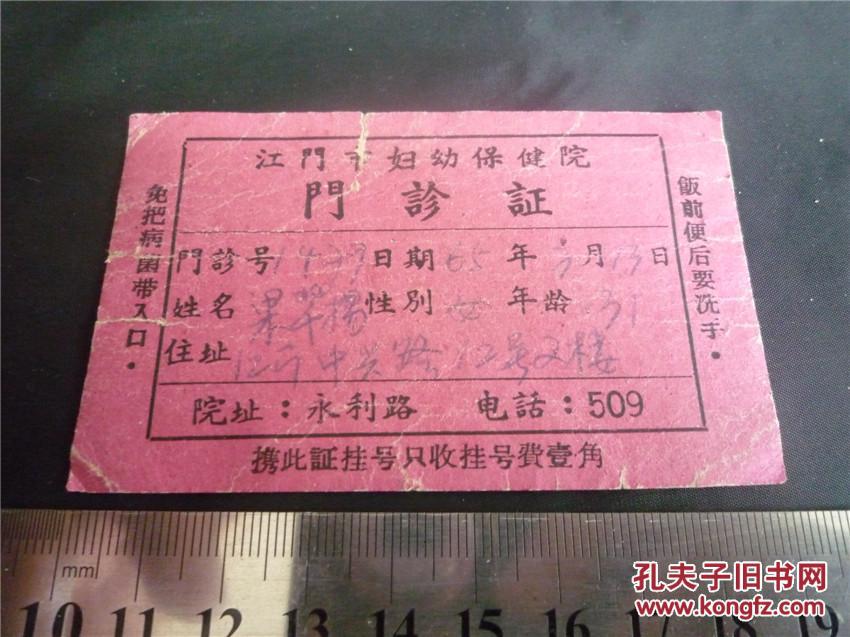 江門市妇幼保健院
門診証
門診号 日期 65 年 月 13 日
姓名 性別 女 年龄 31
住址 江门中兴路12号 楼
院址：永利路 电話：509
携此証挂号只收挂号費壹角
飯前便后要洗手·
免把病菌带入口·
mm
10 11 12 13 14 15 16 17 18 19
孔夫子旧书网
kongfz.com